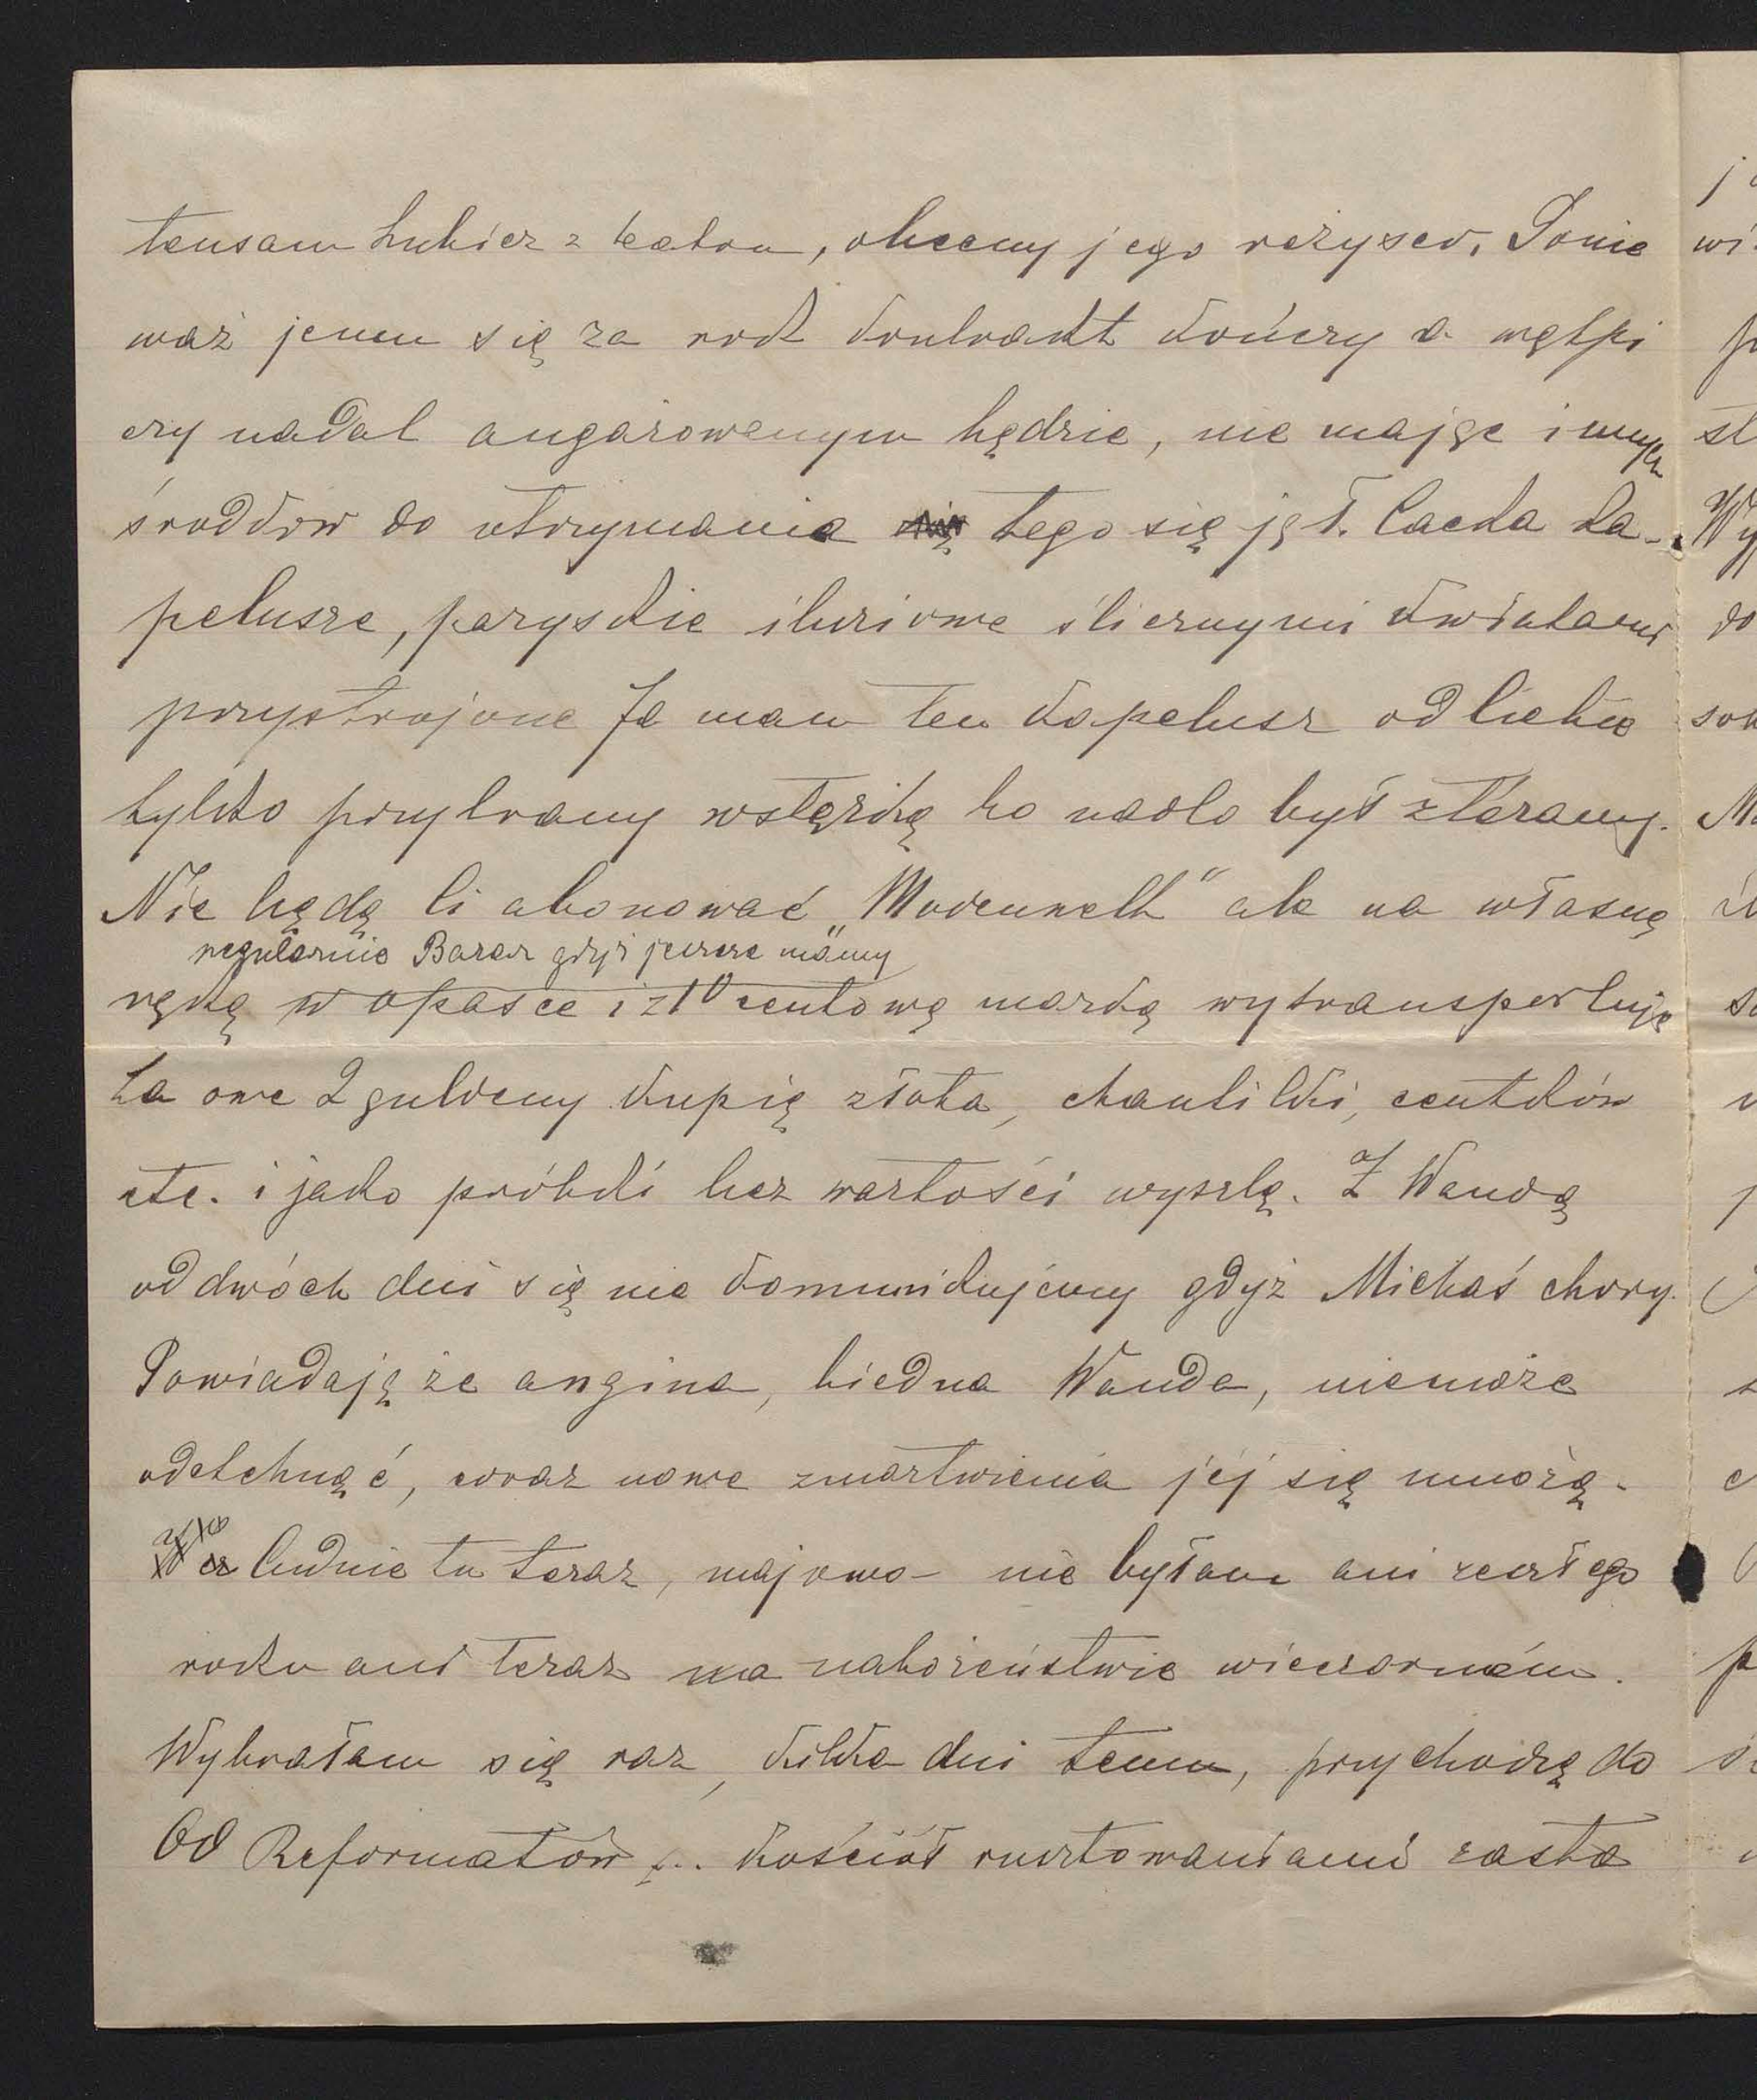 tensam Lubicz z teatru, obecny jego reżyser. Ponie
waż jemu się za rok kontrakt kończy a wątpi
czy nadal angażowanym będzie, nie mając innych
środków do utrzymania tego się jął. Cacka ka-
pelusze, paryskie ślicznymi kwiatami
przystrojone Ja mam ten kapelusz od Ciebie
tylko przybrany wstążką bo nadto był zterany.
Nie będę Ci abonować „Modenwelt" ale na własną
regularnie „Bazar" gdyż jeszcze mamy
rękę w opasce i z 10 centową marką wytransportuję
Za owe 2 guldeny kupię złota, chantilki, centków
etc. i jako próbki bez wartości wyszlę. Z Wandą
od dwóch dni się nie komunikujemy gdyż Michaś chory.
Powiadają że angina, biedna Wanda, niemoże
odetchnąć, coraz nowe zmartwienia jej się mnożą.
Cudnie tu teraz, majowo – nie byłam ani zeszłego
roku ani teraz na nabożeństwie wieczorném.
Wybrałam się raz, kilka dni temu, przychodzę do
OO Reformatów ... kościół rusztowaniami zasta